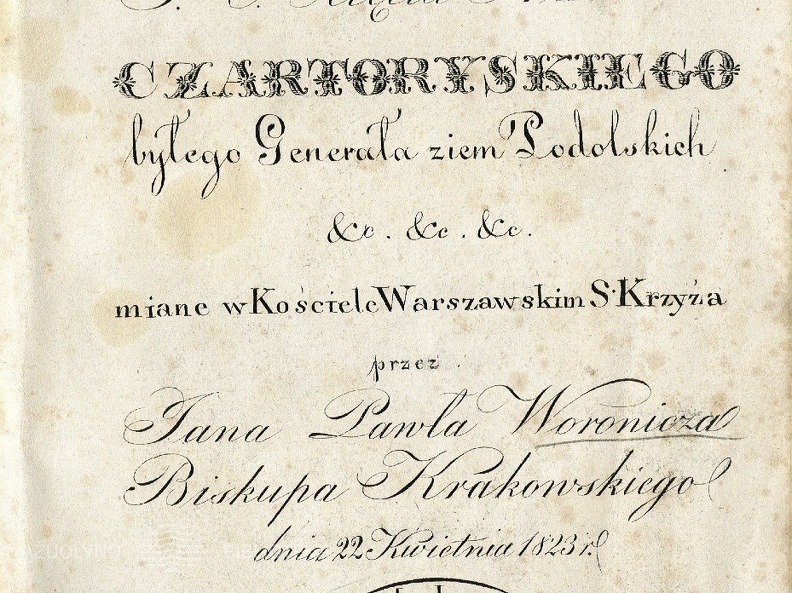 CZARTORYSKIEGO
byłego Generała ziem Podolskich
&c. &c. &c.
miane w Kościele Warszawskim S. Krzyża
przez
Jana Pawła Woronicza
Biskupa Krakowskiego
dnia 22 Kwietnia 1823 r.